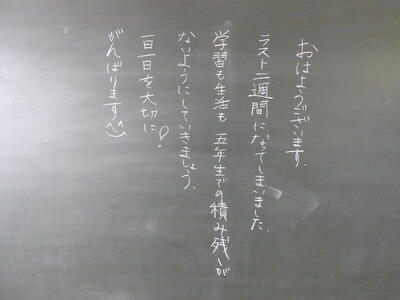 おはようございます.
ラスト二週間になってしまいました.
学習も生活も 五年生での積み残しが
ないようにしていきましょう.
一日一日を大切に!
がんばります